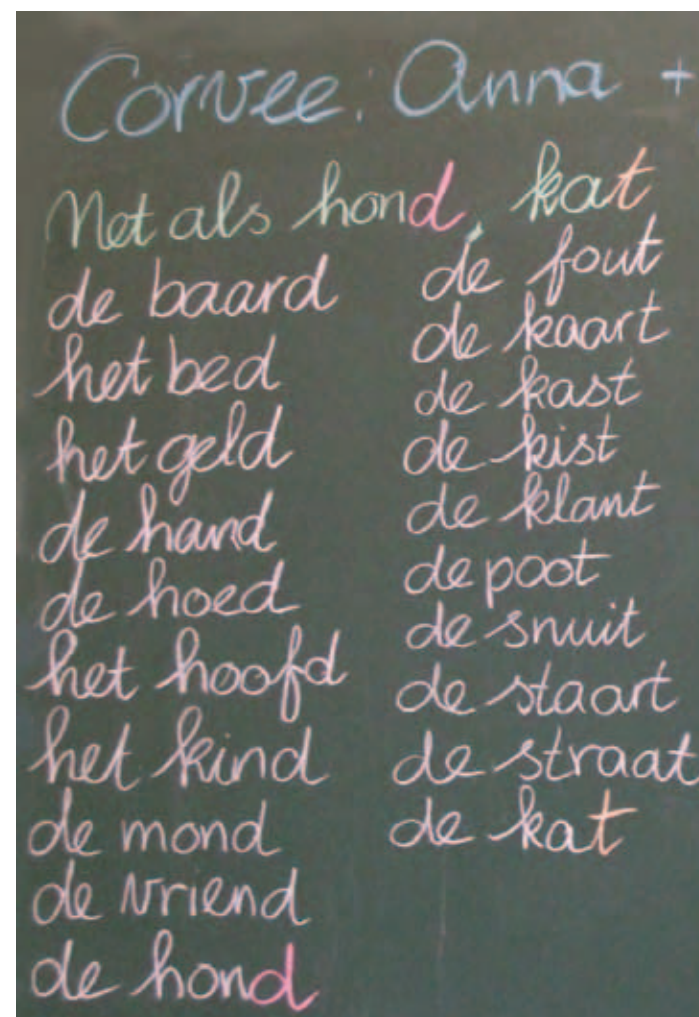 Corvee: Anna +
Net als hond, kat
de baard
het bed
het geld
de hand
de hoed
het hoofd
het kind
de mond
de vriend
de hond
de fout
de kaart
de kast
de kist
de klant
de poot
de snuit
de staart
de straat
de kat